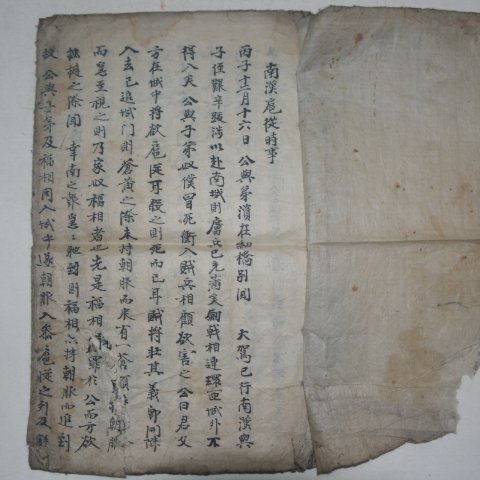 南漢扈從時事
丙子十二月十六日 公與弟濱在細橋別閭 大駕已行南漢與
子侄艱辛跋涉以赴南城則虜兵已充滿矣劍戟相連環匝城外不
得入矣 公與子弟奴僕冒死衝入賊兵相顧欲害之 公曰君父
方在城中將欲扈從耳殺之則死而已耳賊將壯其義即開陣
入去已迫城门則蒼黃之際未持朝服而來有一蒼頭 朝服
而忽至視之則乃家奴福相者也先是福相 罪於 公而方欲
之際聞 幸南之報忽 馳到則福相亦持朝服而追到
故 公與子弟及福相同入城中遂朝服入參扈從之列及